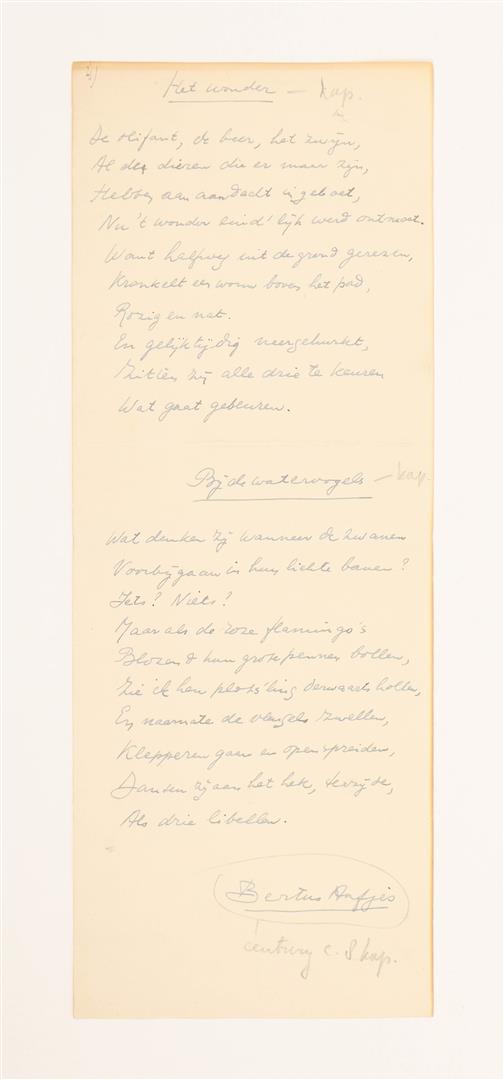 Het wonder — kap.
De olifant, de beer, het zwijn,
Al de dieren die er maar zijn,
Hebben aan aandacht ingeboet,
Nu 't wonder eind'lijk werd ontmoet.
Want halfweg uit de grond gerezen,
Kronkelt een worm boven het pad,
Rozig en nat.
En gelijktijdig neergehurkt,
Zitten zij alle drie te keuren
Wat gaat gebeuren.
Bij de watervogels — kap.
Wat denken zij wanneer de zwanen
Voorbijgaan in hun lichte banen?
Iets? Niets?
Maar als de roze flamingo's
Blozend hun grote pennen bollen,
Zie ik hen plots'ling derwaarts hollen,
En naarmate de vleugels zwellen,
Klepperen gaan en openspreiden,
Dansen zij aan het hek, terzijde,
Als drie libellen.
Bertus Aafjes
century c. 8 kap.